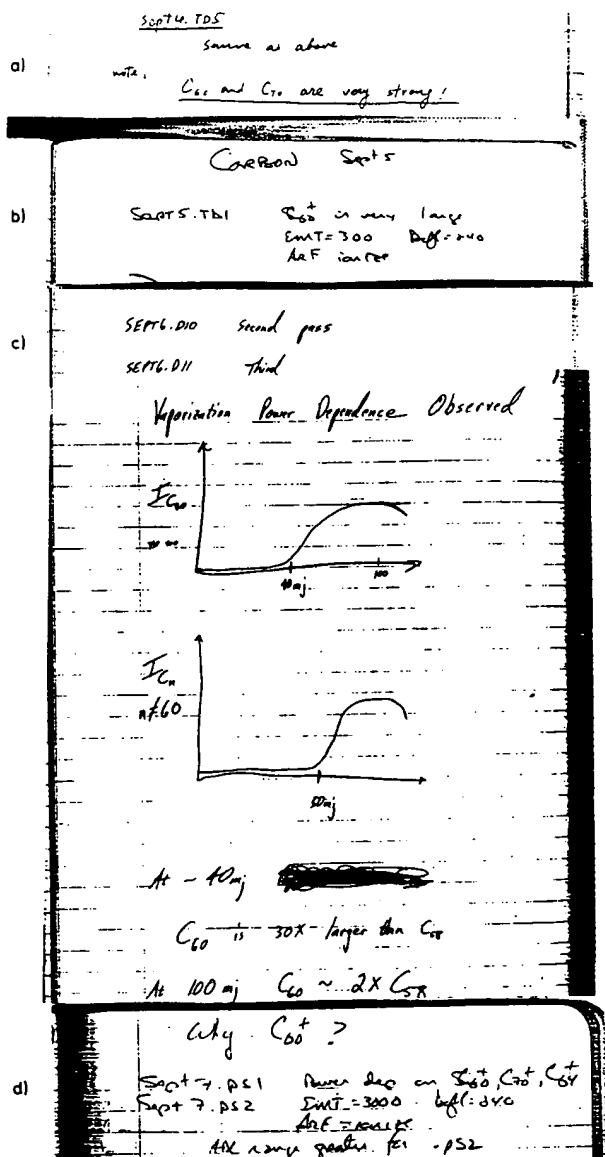 a)
Sept 4. TD5
same as above
note,
C60 and C70 are very strong!
b)
CARBON Sept 5
SEPT 5. TD1 C60+ is very large
EMT=300 Defl=240
ArF ionize
c)
SEPT6.D10 Second pass
SEPT6.D11 Third
Vaporization Power Dependence Observed
I C60
40mj 100
I Cn
n≠60
mj
At ~ 40mj
C60 is 30X larger than C58
At 100 mj C60 ~ 2X C58
d)
Why C60+ ?
Sept 7. PS1 Power dep on C60+, C70+,
Sept 7. PS2 EMT=3000 Defl=240
ArF
range greater for .PS2